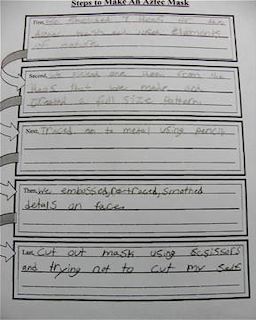 Steps to Make An Aztec Mask
First, We sketched 4 ideas for the
Aztec mask and used elements
of nature.
Second, We picked one idea from the
ideas that we made and
created a full size pattern.
Next, Traced on to metal using pencil
Then, We embossed, re-traced, smothed
detals on face.
Last, Cut out mask using scissors
and trying not to cut my self